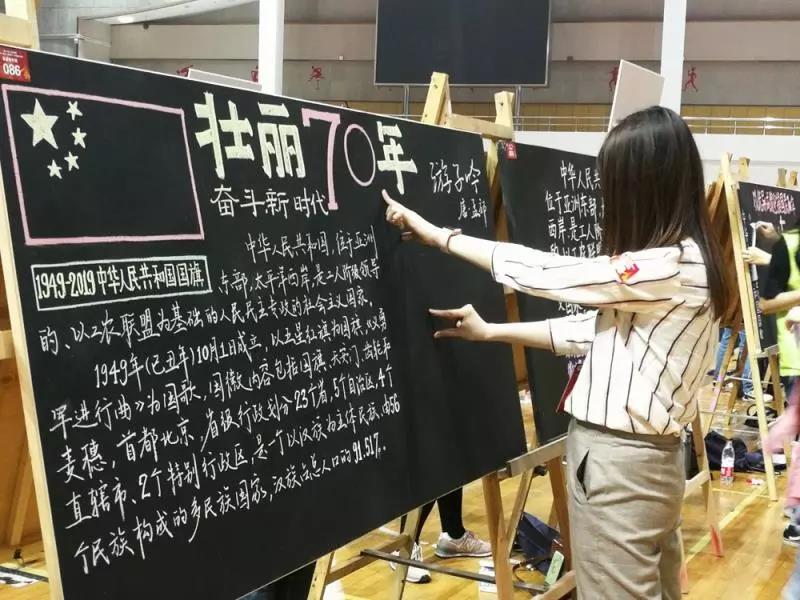 086
壮丽70年
奋斗新时代
游子吟
唐·孟郊
1949-2019中华人民共和国国旗
中华人民共和国,位于亚洲
东部,太平洋西岸,是工人阶级领导
的、以工农联盟为基础的人民民主专政的社会主义国家,
1949年(己丑年)10月1日成立,以五星红旗为国旗,《义勇
军进行曲》为国歌,国徽内容包括国旗、天安门、齿轮和
麦穗,首都北京,省级行政划分23个省,5个自治区,4个
直辖市,2个特别行政区,是一个以汉族为主体民族,由56
个民族构成的多民族国家,汉族占总人口的91.51%。
中华人民共
位于亚洲东部,
西岸,是工人阶